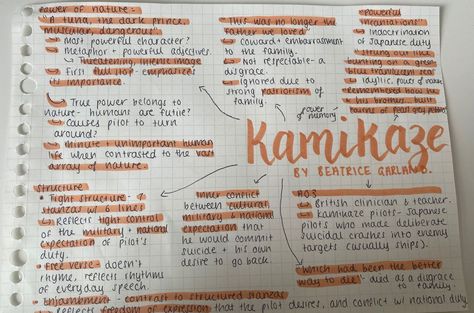 Power of nature -
"A tuna, the dark prince,
muscular, dangerous"
↳ Most powerful character?
↳ Metaphor + powerful adjectives.
↳ Threatening, intense image
↳ First full stop - emphasises
its importance.
↳ True power belongs to
nature - humans are futile?
↳ Causes pilot to turn
around?
↳ Minute unimportant human
life when contrasted to the vast
array of nature.
"This was no longer the
father we loved"
↳ Coward + embarrassment
to the family.
↳ Not respectable - a
disgrace.
↳ Ignored due to
strong patriotism of
family.
"powerful
incantations"
↳ Indoctrination
of Japanese duty
"strung out like
bunting on a green
blue translucent sea"
↳ Idyllic, power of nature
"remembered how he
his brothers built
cairns of pearl grey pebbles"
power
of memory
Kamikaze
BY BEATRICE GARLAND.
Structure
• Tight structure - 7
stanzas w/ 6 lines
↳ Reflects tight control
of the military + national
expectation of pilot's
duty.
• Free verse - doesn't
rhyme, reflects rhythms
of everyday speech.
• Enjambment - contrast to structured stanzas
↳ Reflects freedom of expression that the pilot desires, and conflict w/ national duty.
Inner conflict
between cultural,
military + national
expectation that
he would commit
suicide + his own
desire to go back.
↳ British clinician & teacher.
↳ Kamikaze pilots - Japanese
pilots who made deliberate
suicidal crashes into enemy
targets (usually ships).
"which had been the better
way to die" - died as a disgrace
to family.